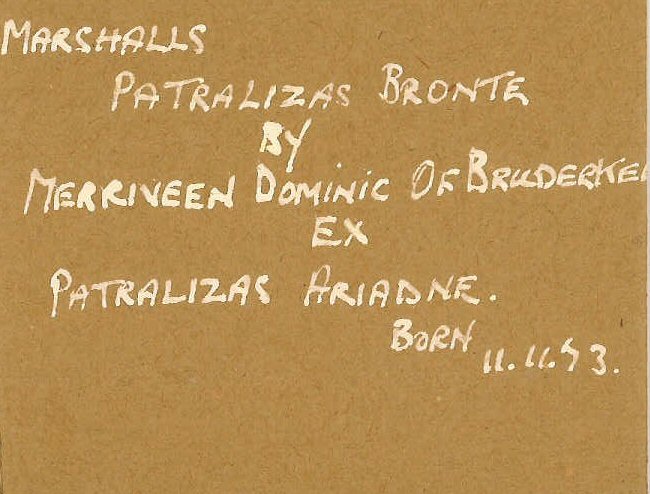 MARSHALLS
PATRALIZAS BRONTE
BY
MERRIVEEN DOMINIC OF
EX
PATRALIZAS ARIADNE.
BORN